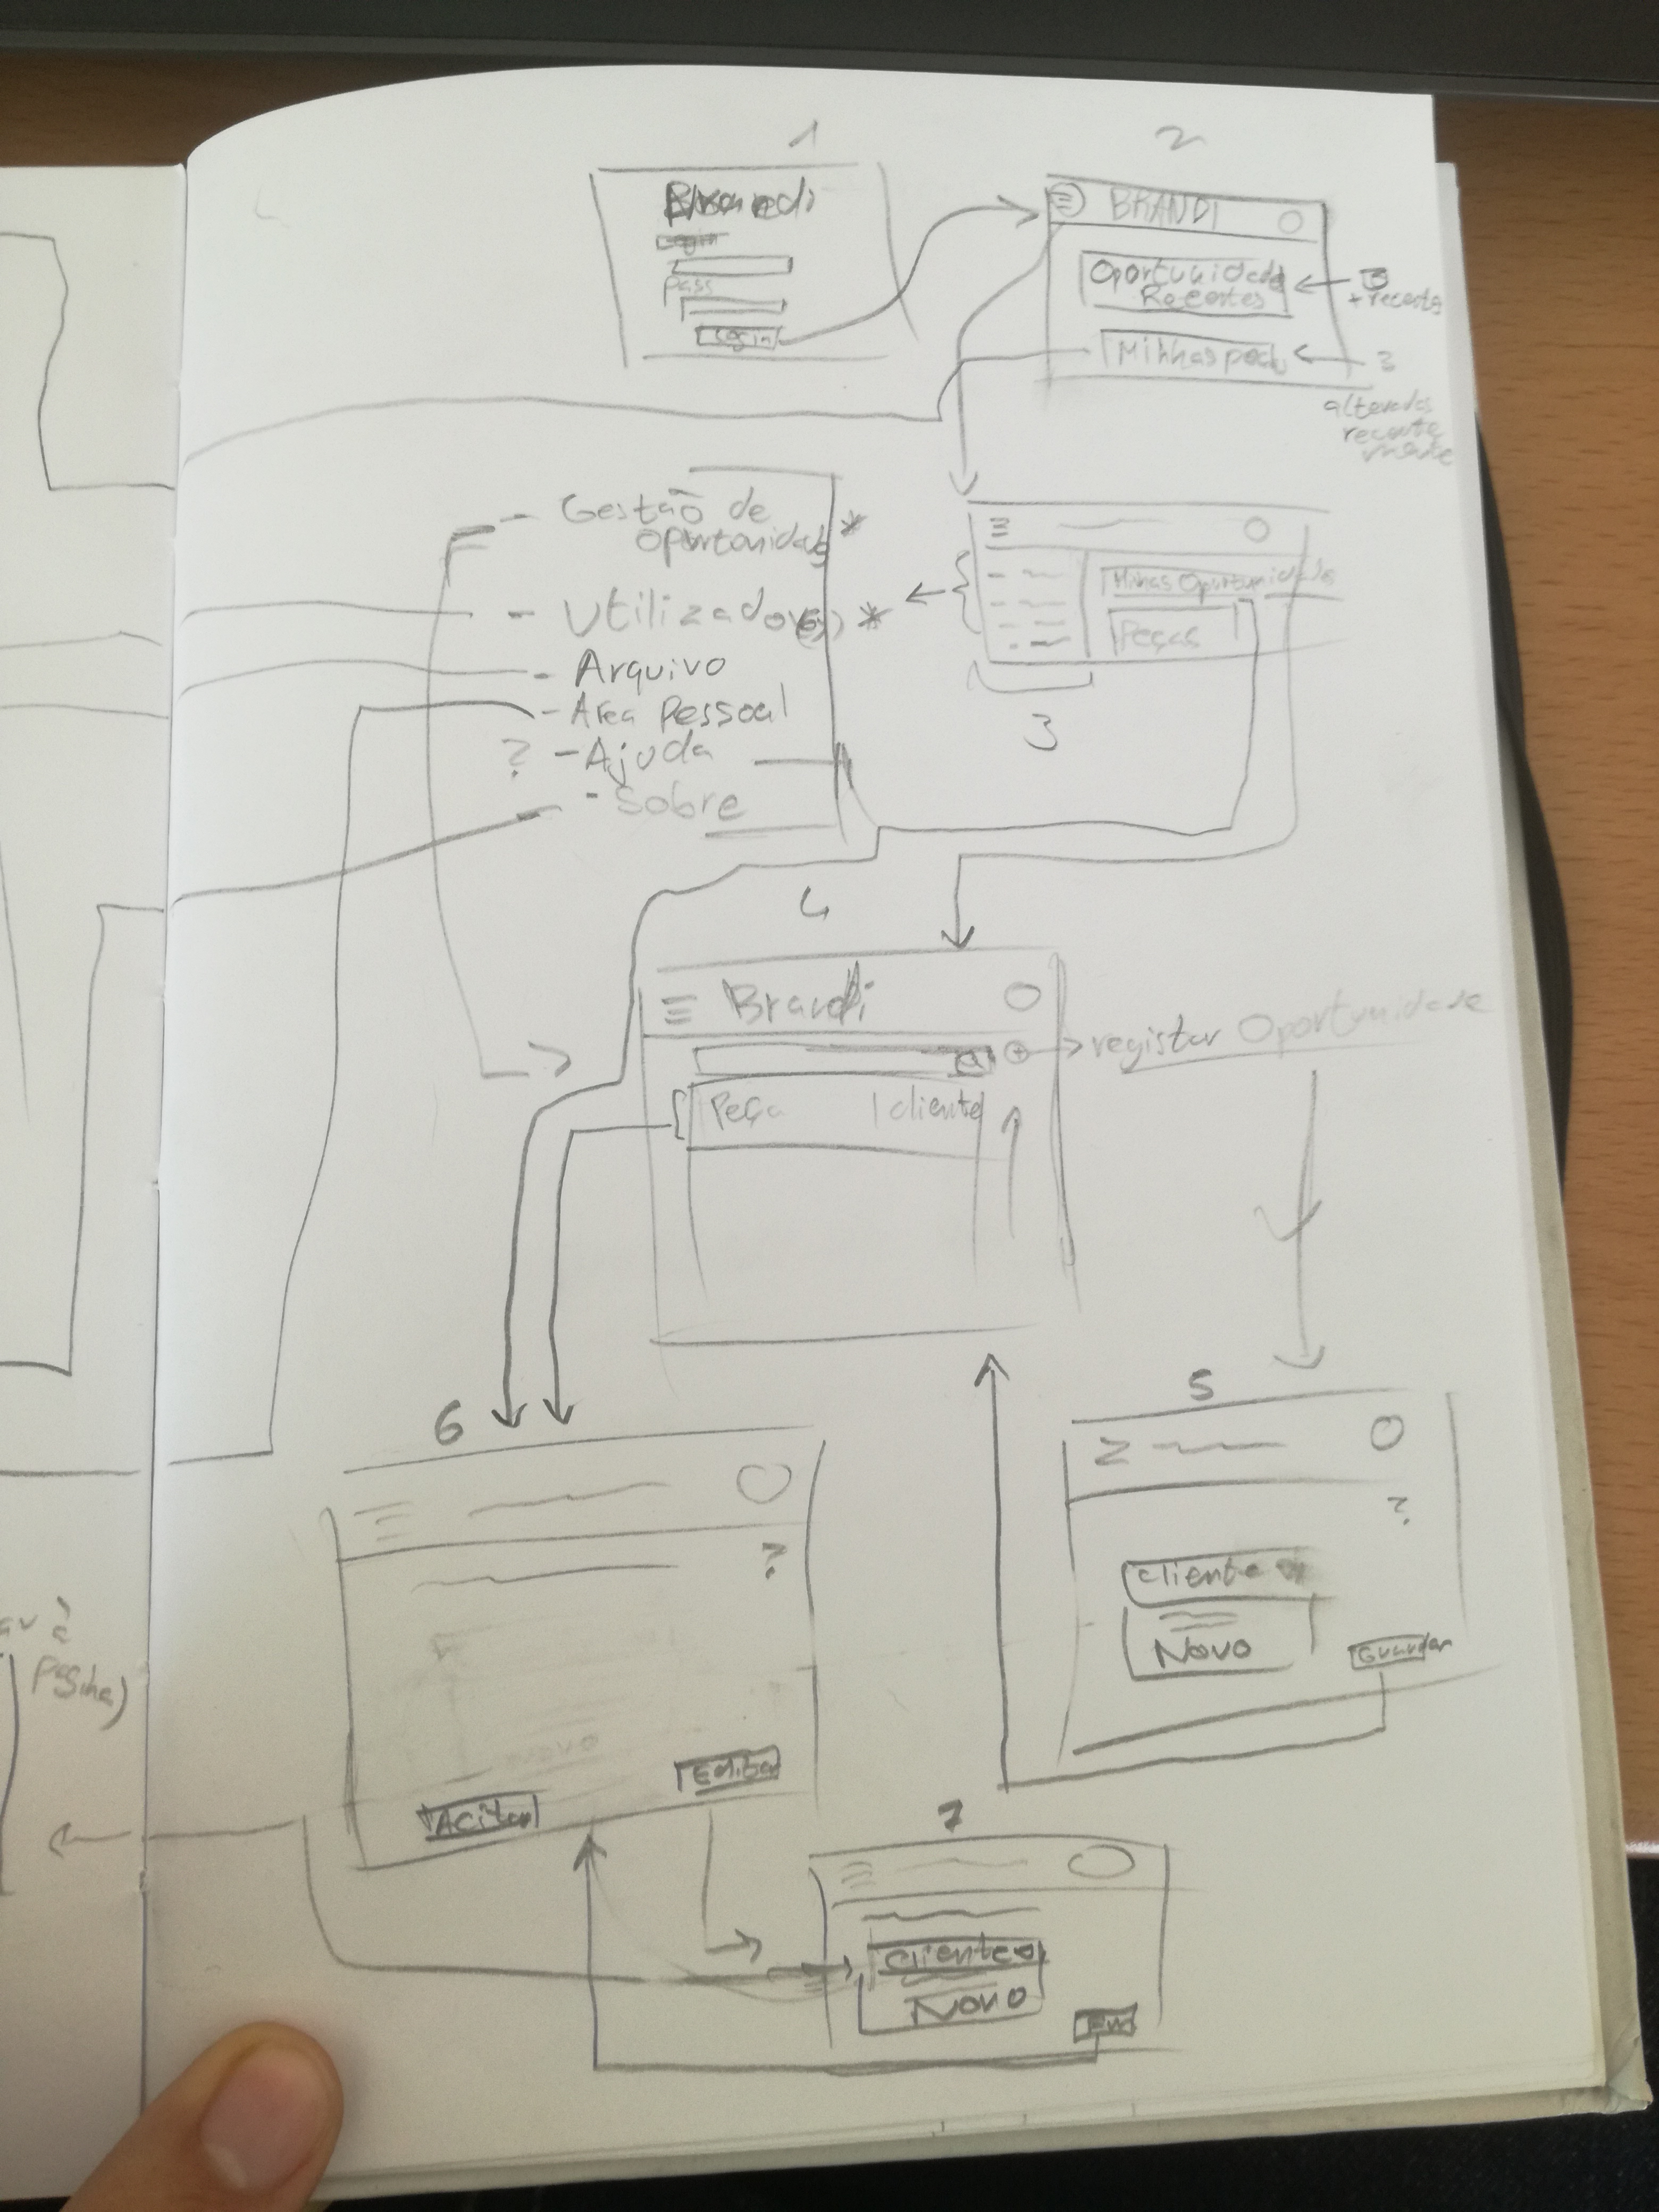 1
Brandi
Login
Pass
Login
2
BRANDI
Oportunidades
Recentes
3
+ recentes
Minhas peças
3
alteradas
recente
mente
- Gestão de
oportunidades *
- Utilizador(es) *
- Arquivo
- Area Pessoal
? - Ajuda
- Sobre
Minhas Oportunidades
Peças
3
4
Brandi
registar Oportunidade
Peça | cliente
5
?
cliente
Novo
Guardar
6
?
Novo
Editar
Aceitar
7
cliente
Novo
página)